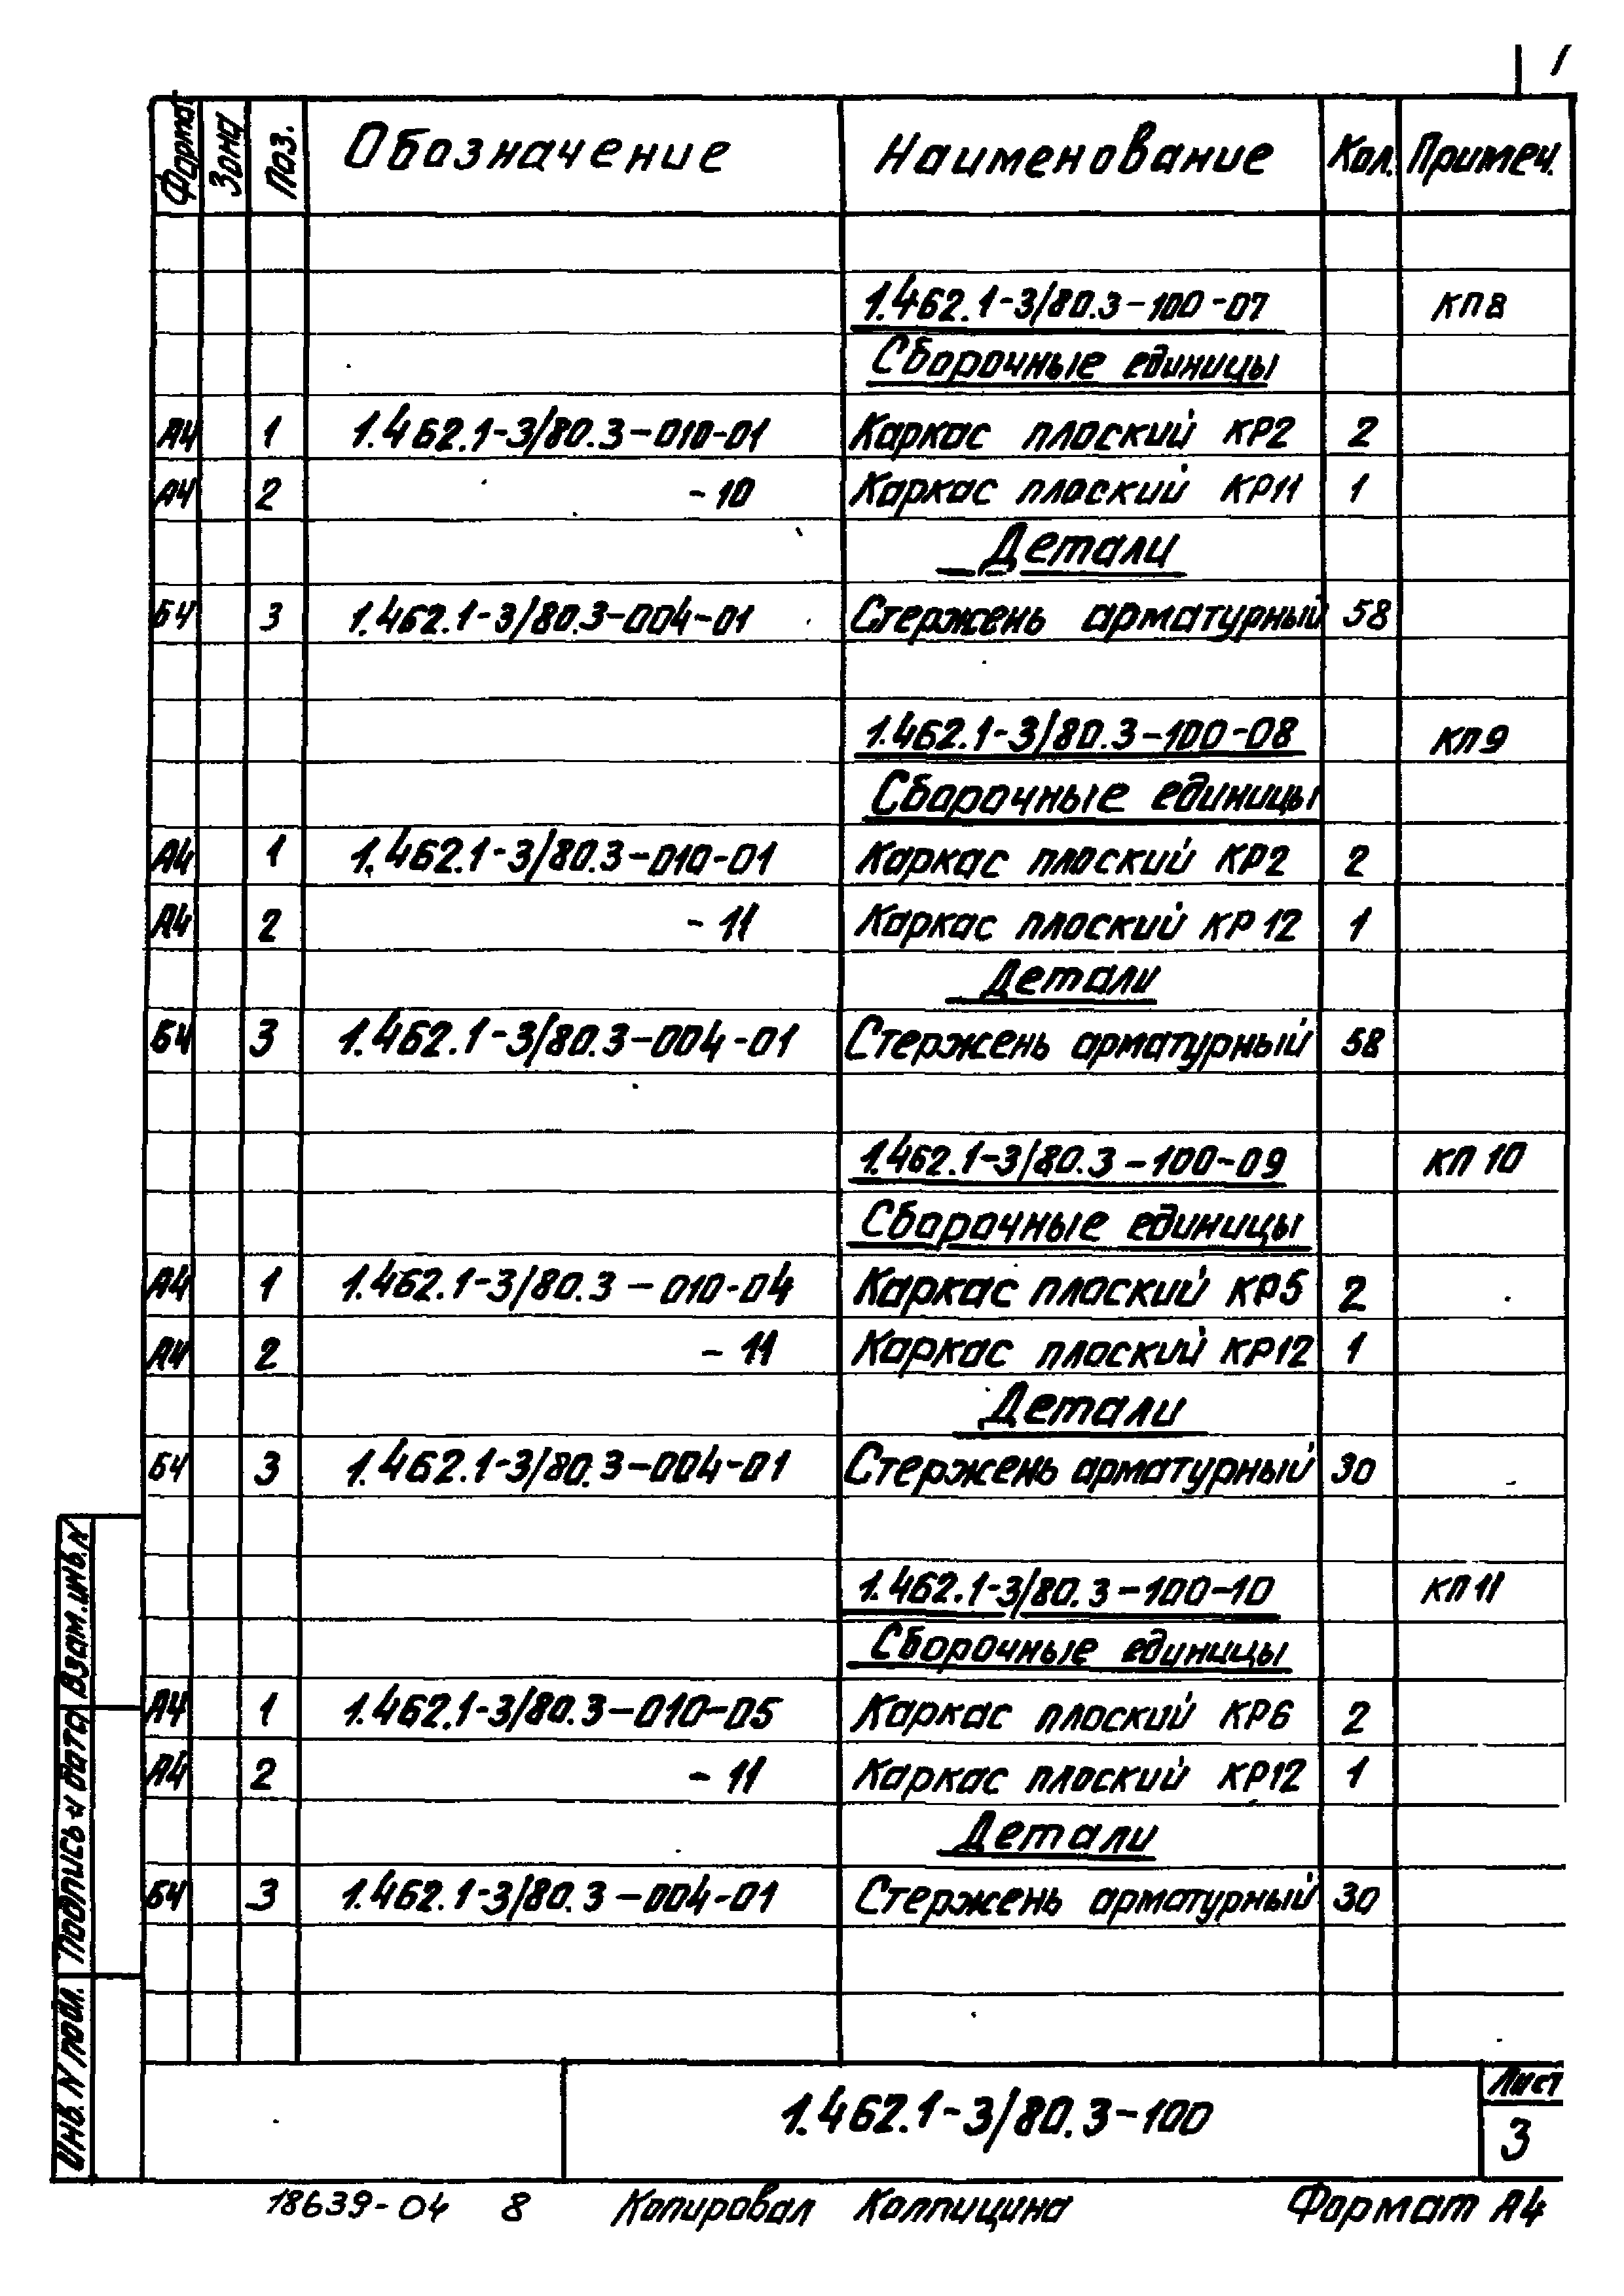 Формат Зона Поз. Обозначение Наименование Кол. Примеч.
1.462.1-3/80.3-100-07 КП8
Сборочные единицы
А4 1 1.462.1-3/80.3-010-01 Каркас плоский КР2 2
А4 2 -10 Каркас плоский КР11 1
Детали
БЧ 3 1.462.1-3/80.3-004-01 Стержень арматурный 58
1.462.1-3/80.3-100-08 КП9
Сборочные единицы
А4 1 1.462.1-3/80.3-010-01 Каркас плоский КР2 2
А4 2 -11 Каркас плоский КР12 1
Детали
БЧ 3 1.462.1-3/80.3-004-01 Стержень арматурный 58
1.462.1-3/80.3-100-09 КП10
Сборочные единицы
А4 1 1.462.1-3/80.3-010-04 Каркас плоский КР5 2
А4 2 -11 Каркас плоский КР12 1
Детали
БЧ 3 1.462.1-3/80.3-004-01 Стержень арматурный 30
1.462.1-3/80.3-100-10 КП11
Сборочные единицы
А4 1 1.462.1-3/80.3-010-05 Каркас плоский КР6 2
А4 2 -11 Каркас плоский КР12 1
Детали
БЧ 3 1.462.1-3/80.3-004-01 Стержень арматурный 30
Взам.инв.N
Подпись и дата
Инв. N подл.
1.462.1-3/80.3-100
Лист
3
18639-04 8 Копировал Колпицина Формат А4